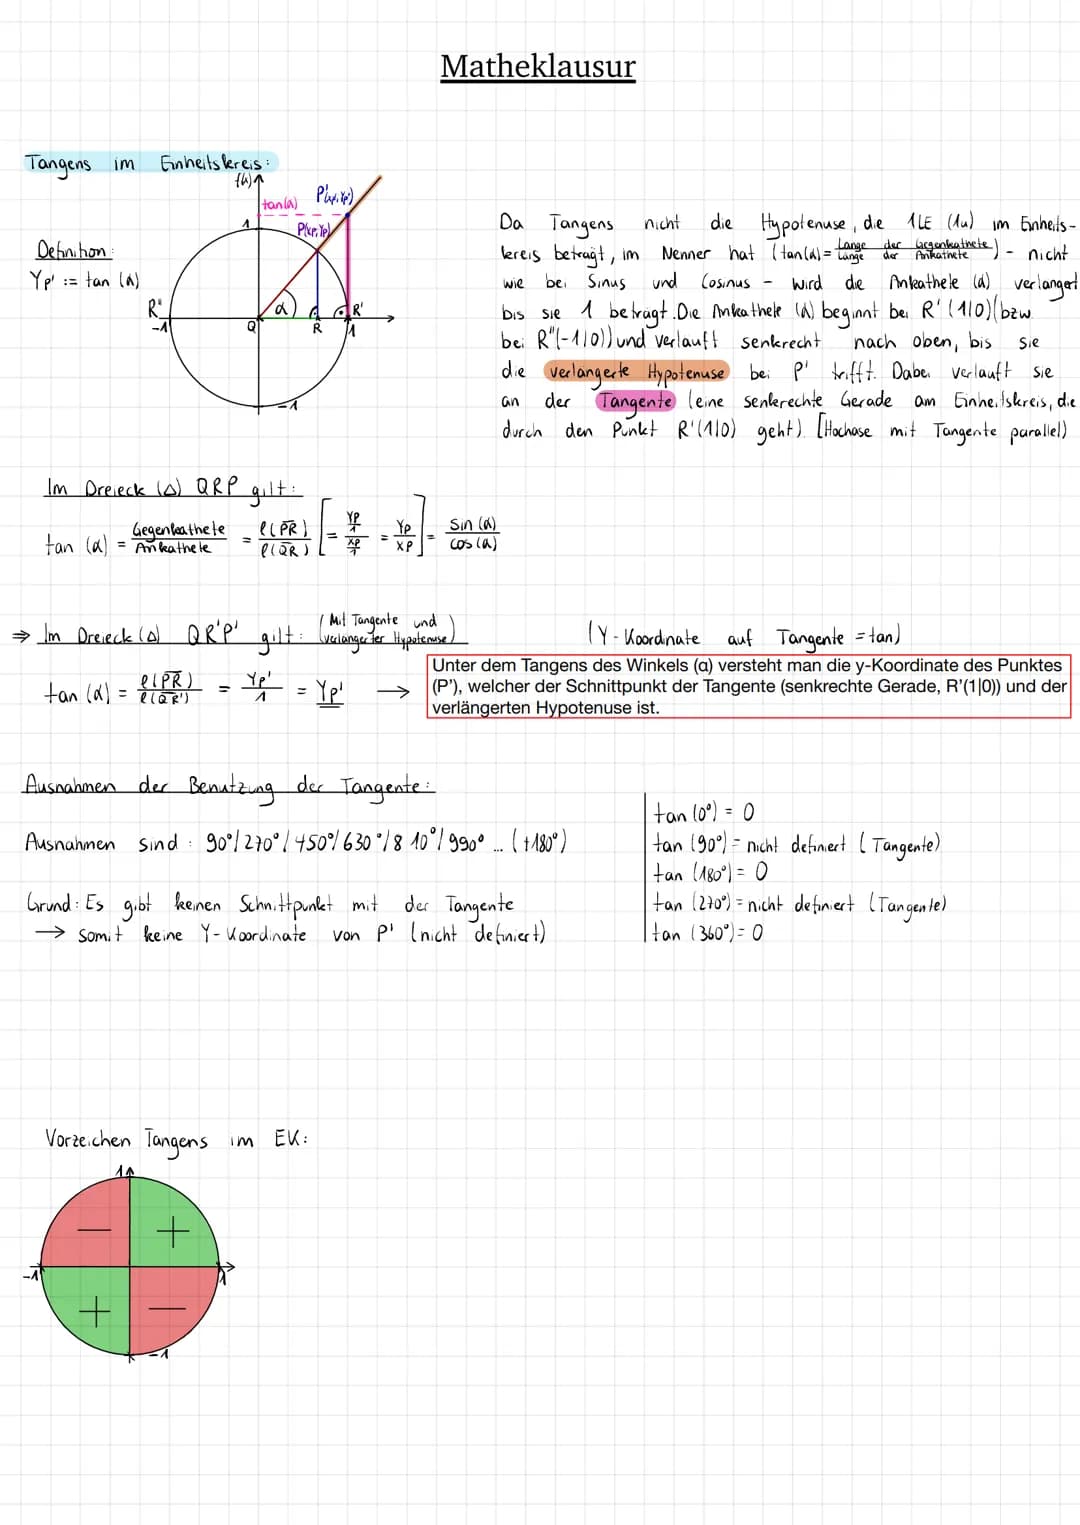 Matheklausur
Tangens im Einheitskreis:
f(α)
tan(α) P'(xp', yp')
1 P(xp, yp)
Definition:
Yp' := tan (α)
R" α R'
-1 Q R 1
-1
Da Tangens nicht die Hypotenuse, die 1LE (1u) im Einheits-
kreis beträgt, im Nenner hat (tan(α) = Länge der Gegenkathete / Länge der Ankathete) - nicht
wie bei Sinus und Cosinus - wird die Ankathete (α) verlängert
bis sie 1 beträgt. Die Ankathete (α) beginnt bei R' (1|0) (bzw.
bei R"(-1|0)) und verläuft senkrecht nach oben, bis sie
die verlängerte Hypotenuse bei P' trifft. Dabei verläuft sie
an der Tangente (eine senkrechte Gerade am Einheitskreis, die
durch den Punkt R'(1|0) geht). [Hochase mit Tangente parallel)
Im Dreieck (Δ) QRP gilt:
tan (α) = Gegenkathete / Ankathete = ℓ(PR) / ℓ(QR) [= Yp/1 / Xp/1 = Yp / Xp] = sin (α) / cos (α)
⇒ Im Dreieck (Δ) QR'P' gilt: (Mit Tangente und verlängerter Hypotenuse)
(Y-Koordinate auf Tangente = tan)
tan (α) = ℓ(PR) / ℓ(QR') = Yp' / 1 = Yp' →
Unter dem Tangens des Winkels (α) versteht man die y-Koordinate des Punktes
(P'), welcher der Schnittpunkt der Tangente (senkrechte Gerade, R'(1|0)) und der
verlängerten Hypotenuse ist.
Ausnahmen der Benutzung der Tangente:
Ausnahmen sind: 90°/270°/450°/630°/810°/990° ... (+180°)
Grund: Es gibt keinen Schnittpunkt mit der Tangente
→ somit keine Y-Koordinate von P' (nicht definiert)
tan (0°) = 0
tan (90°) = nicht definiert (Tangente)
tan (180°) = 0
tan (270°) = nicht definiert (Tangente)
tan (360°) = 0
Vorzeichen Tangens im EK:
1
− +
-1 1
+ −
-1